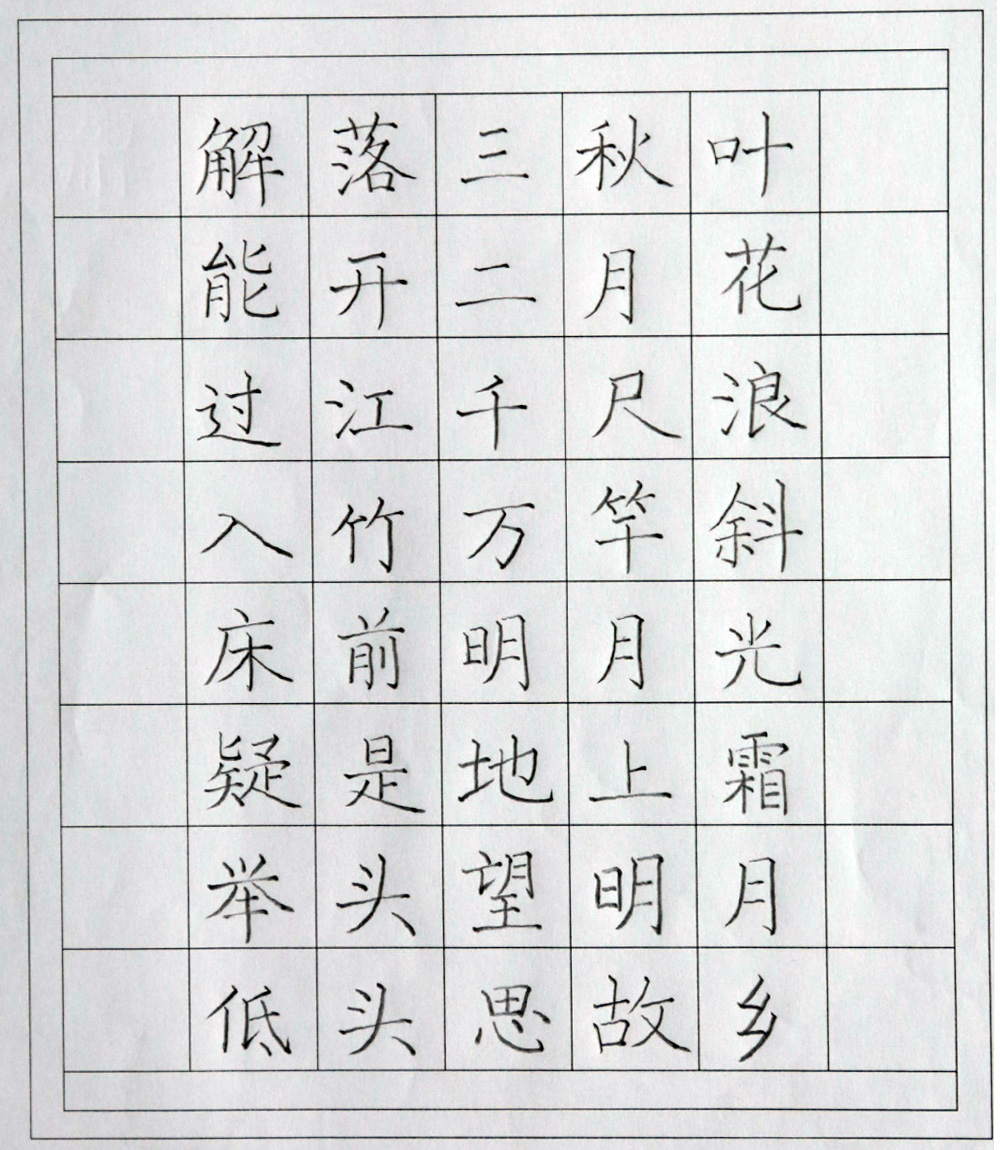 解落三秋叶
能开二月花
过江千尺浪
入竹万竿斜
床前明月光
疑是地上霜
举头望明月
低头思故乡